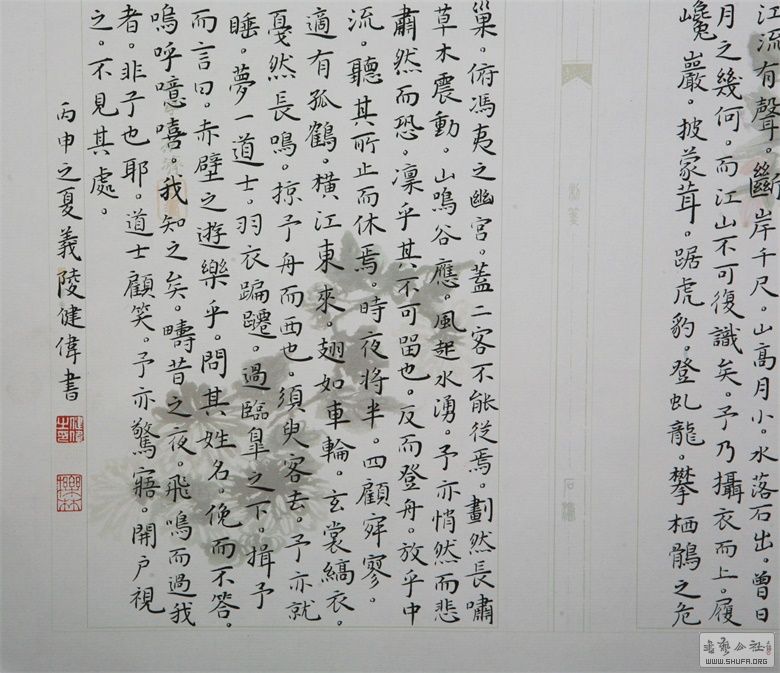 江流有聲。斷岸千尺。山高月小。水落石出。曾日
月之幾何。而江山不可復識矣。予乃攝衣而上。履
巉巖。披蒙茸。踞虎豹。登虬龍。攀栖鶻之危
巢。俯馮夷之幽宮。蓋二客不能從焉。劃然長嘯
草木震動。山鳴谷應。風起水湧。予亦悄然而悲
肅然而恐。凜乎其不可留也。反而登舟。放乎中
流。聽其所止而休焉。時夜將半。四顧寂寥。
適有孤鶴。橫江東來。翅如車輪。玄裳縞衣。
戛然長鳴。掠予舟而西也。須臾客去。予亦就
睡。夢一道士。羽衣蹁躚。過臨皋之下。揖予
而言曰。赤壁之遊樂乎。問其姓名。俛而不答。
嗚呼噫嘻。我知之矣。疇昔之夜。飛鳴而過我
者。非予也耶。道士顧笑。予亦驚寤。開戶視
之。不見其處。
丙申之夏義陵健偉書
WWW.SHUFA.ORG